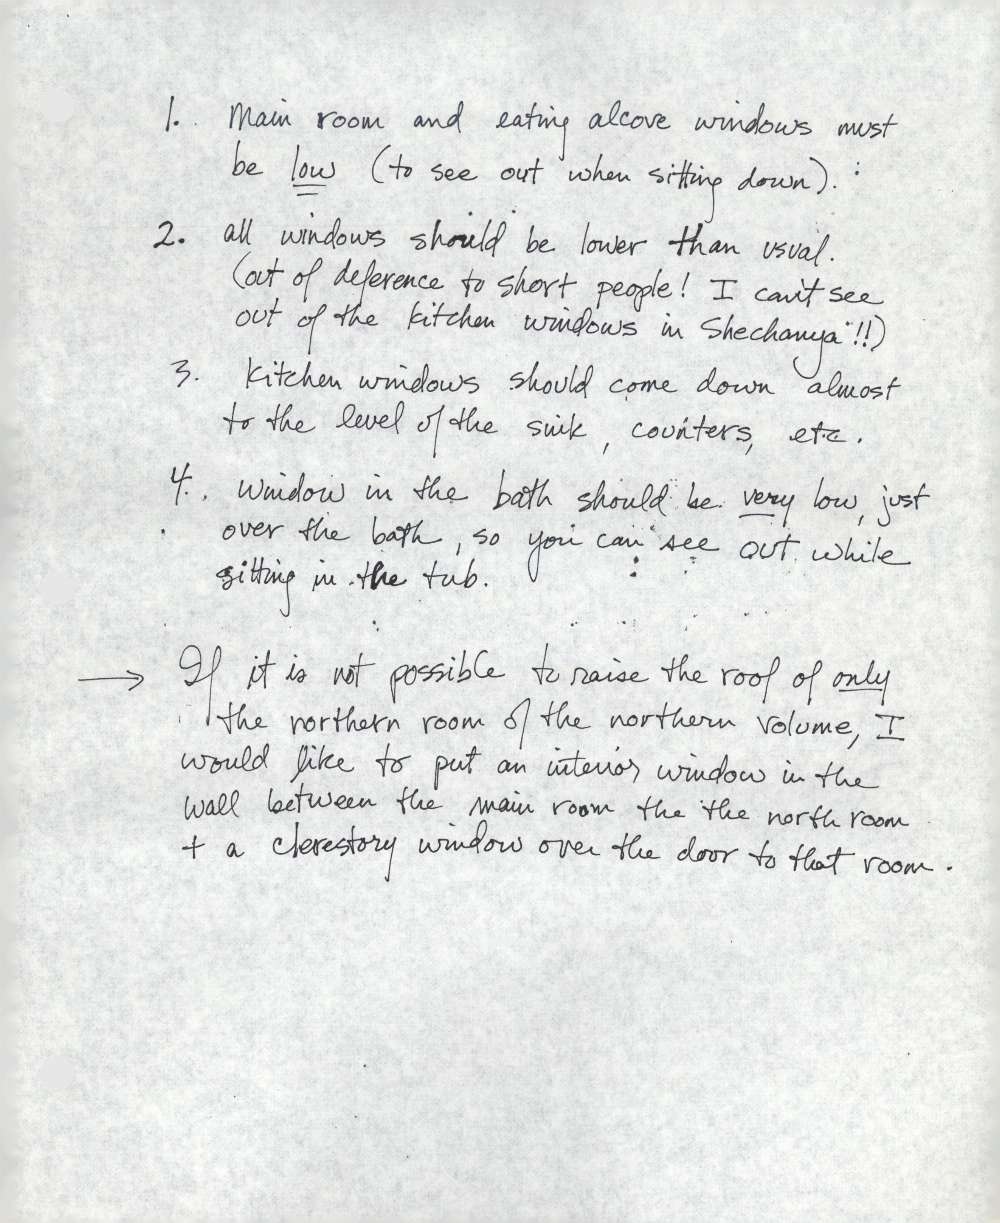 1. Main room and eating alcove windows must
be low (to see out when sitting down).
2. all windows should be lower than usual.
(out of deference to short people! I can't see
out of the kitchen windows in Shechanya!!)
3. Kitchen windows should come down almost
to the level of the sink, counters, etc.
4. Window in the bath should be very low, just
over the bath, so you can see out while
sitting in the tub.
→ If it is not possible to raise the roof of only
the northern room of the northern volume, I
would like to put an interior window in the
wall between the main room the the north room
+ a clerestory window over the door to that room.